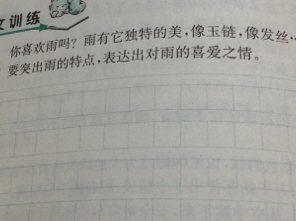 文训练
你喜欢雨吗？雨有它独特的美，像玉链，像发丝…
要突出雨的特点，表达出对雨的喜爱之情。